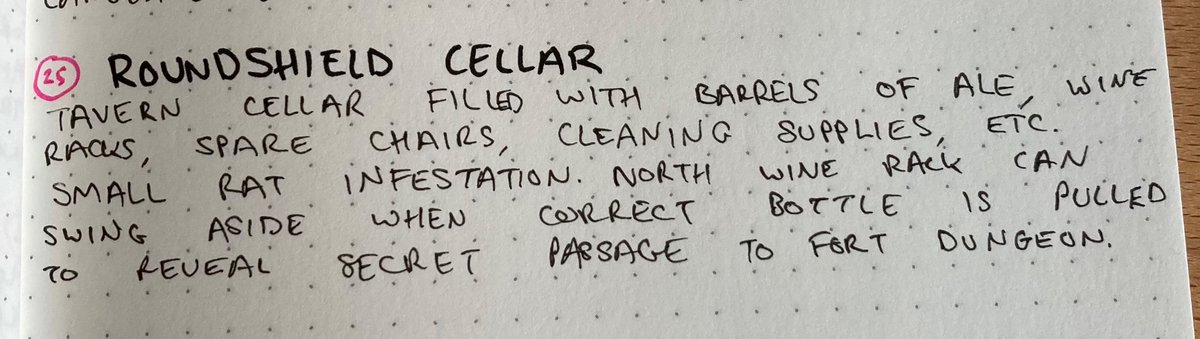 25 ROUNDSHIELD CELLAR
TAVERN CELLAR FILLED WITH BARRELS OF ALE, WINE
RACKS, SPARE CHAIRS, CLEANING SUPPLIES, ETC.
SMALL RAT INFESTATION. NORTH WINE RACK CAN
SWING ASIDE WHEN CORRECT BOTTLE IS PULLED
TO REVEAL SECRET PASSAGE TO FORT DUNGEON.